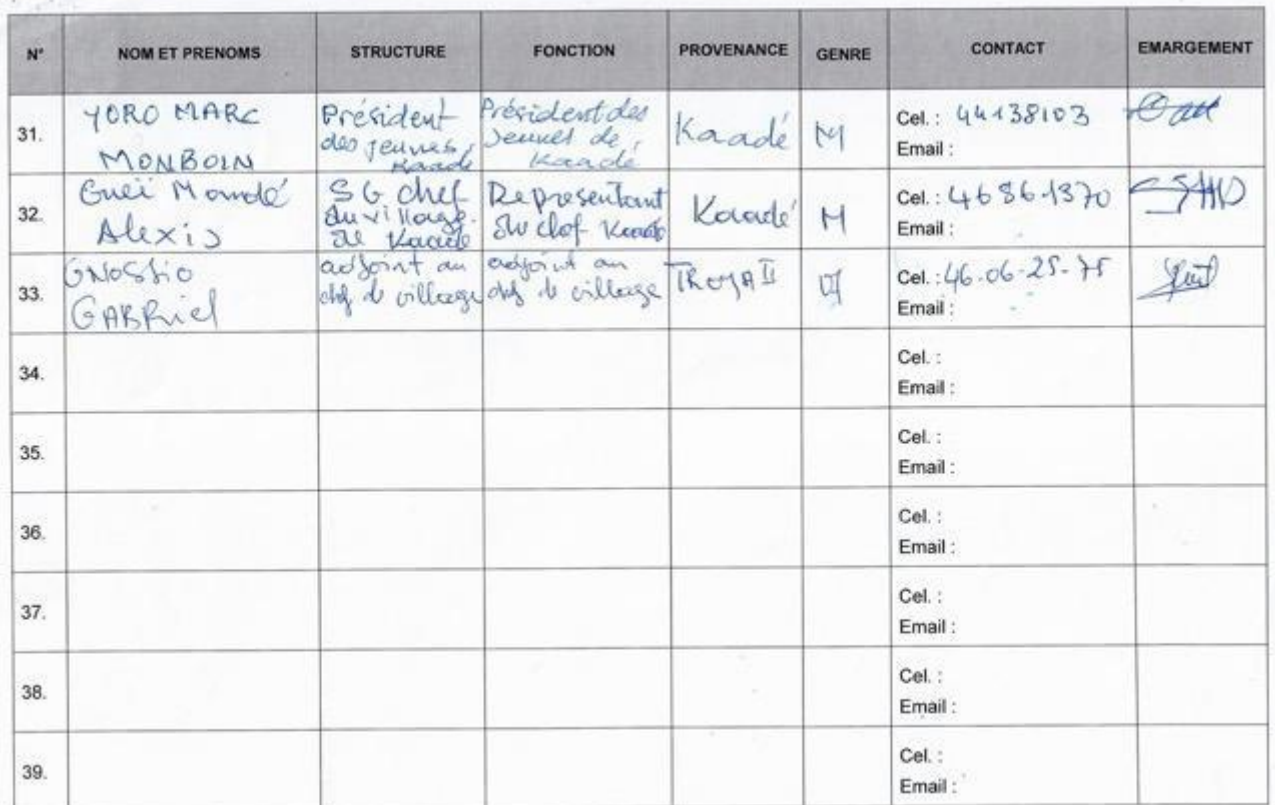 N° NOM ET PRENOMS STRUCTURE FONCTION PROVENANCE GENRE CONTACT EMARGEMENT
31. YORO MARC MONBOIN Président des jeunes Kaadé Président des jeunes de Kaadé Kaadé M Cel. : 44138103
Email :
32. Gueï Mondé Alexis SG chef du village de Kaadé Representant du chef Kaadé Kaadé M Cel. : 46861370
Email :
33. GNOSSIO GABRiel adjoint au chef de village adjoint au chef de village TROYA II M Cel. : 46.06.25.75
Email :
34. Cel. :
Email :
35. Cel. :
Email :
36. Cel. :
Email :
37. Cel. :
Email :
38. Cel. :
Email :
39. Cel. :
Email :